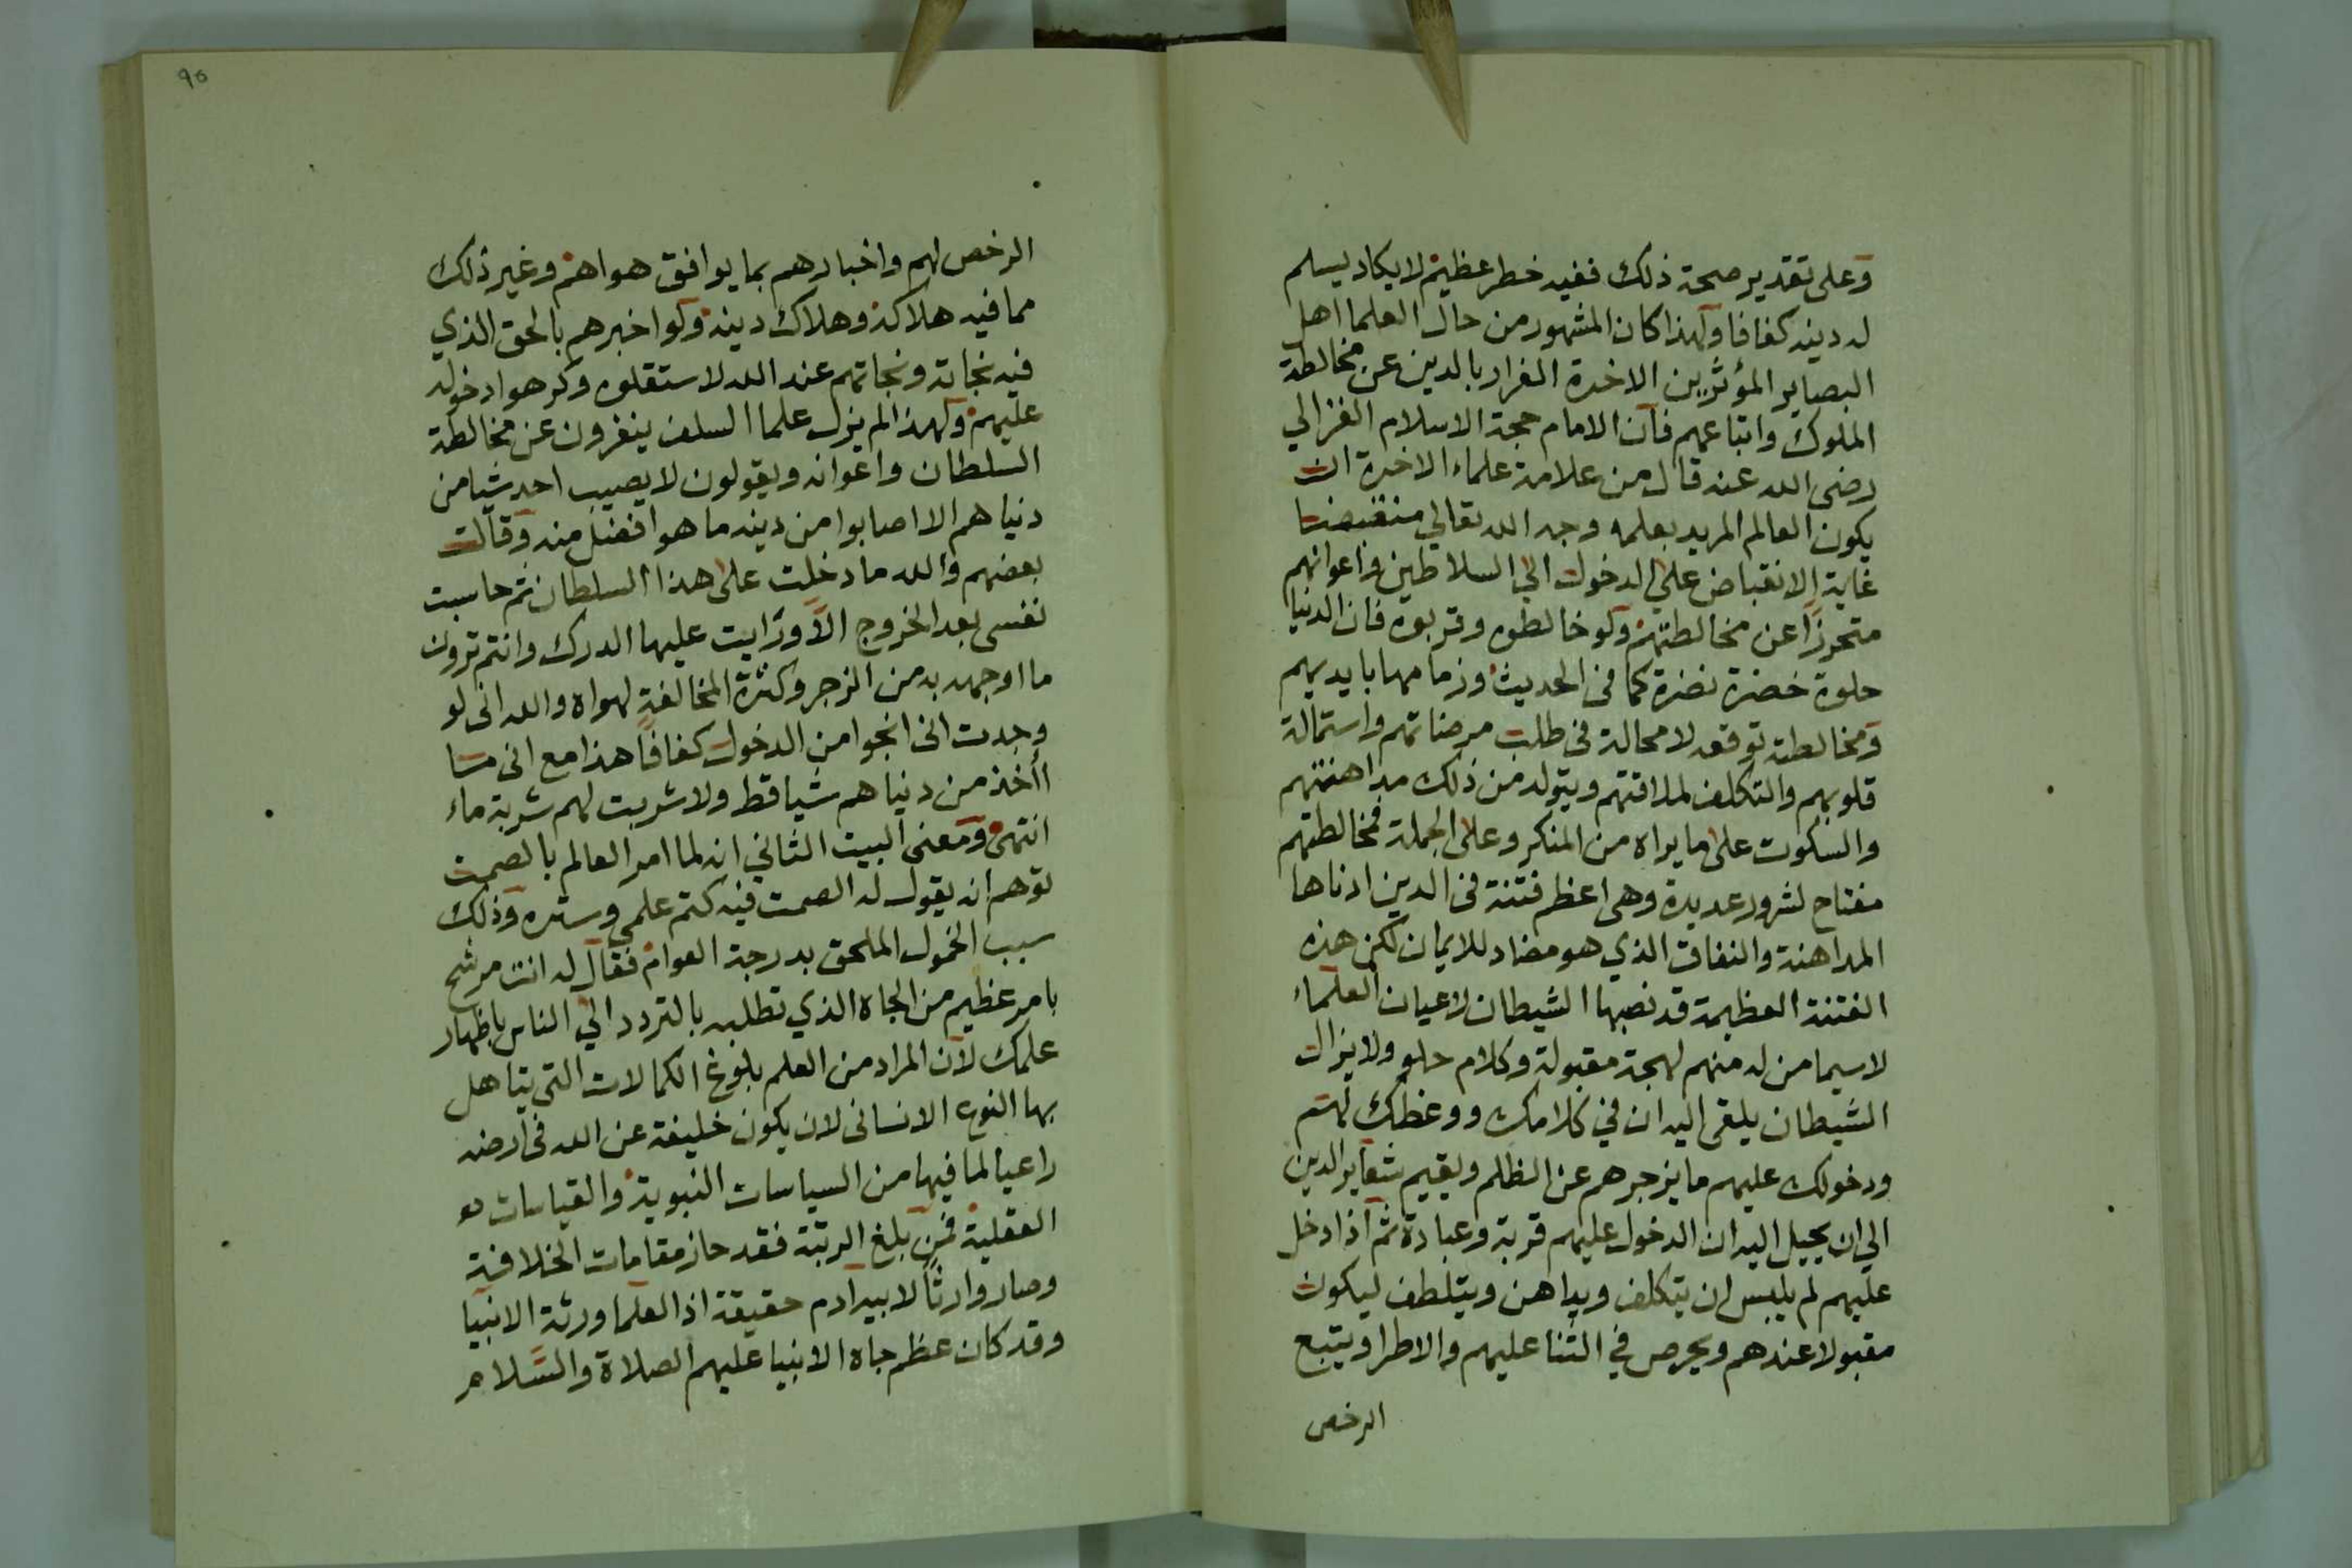 وعلى تقدير صحة ذلك ففيه خطر عظيم لا يكاد يسلم
له دينه كفافا ولهذا كان المشهور من حال العلما اهل
البصاير المؤثرين الاخرة الفرار بالدين عن مخالطة
الملوك واتباعهم فان الامام حجة الاسلام الغزالي
رضى الله عنه قال من علامة علماء الاخرة ان
يكون العالم المريد بعلمه وجه الله تعالي منقبضا
غاية الانقباض على الدخول الي السلاطين واعوانهم
متحرزا عن مخالطتهم ولو خالطوه وقربوه فان الدنيا
حلوة خضرة نضرة كما فى الحديث وزمامها بايديهم
ومخالطته توقعه لا محالة فى طلب مرضاتهم واستمالة
قلوبهم والتكلف لملاقتهم ويتولد من ذلك مداهنتهم
والسكوت على ما يراه من المنكر وعلى الجملة فمخالطتهم
مفتاح لشرور عديدة وهى اعظم فتنة فى الدين ادناها
المداهنة والنفاق الذي هو مضاد للايمان لكن هذه
الفتنة العظيمة قد نصبها الشيطان لاعيان العلماء
لاسيما من له منهم لهجة مقبولة وكلام حلو ولا يزال
الشيطان يلقى اليه ان في كلامك ووعظك لهم
ودخولك عليهم ما يزجرهم عن الظلم ويقيم شعاير الدين
الي ان يخيل اليه ان الدخول عليهم قربة وعبادة ثم اذا دخل
عليهم لم يلبس ان يتكلف ويداهن ويتلطف ليكون
مقبولا عندهم ويحرص في الثنا عليهم والاطرا ويتبع
الرخص
٩٥
الرخص لهم واخبارهم بما يوافق هواهم وغير ذلك
مما فيه هلاكه وهلاك دينه ولو اخبرهم بالحق الذي
فيه نجاته ونجاتهم عند الله لاستقلوه وكرهوا دخوله
عليهم ولهذا لم يزل علما السلف ينفرون عن مخالطة
السلطان واعوانه ويقولون لا يصيب احد شيا من
دنياهم الا اصابوا من دينه ما هو افضل منه وقالت
بعضهم والله ما دخلت على هذا السلطان ثم حاسبت
نفسى بعد الخروج الا ورايت عليها الدرك وانتم ترون
ما اوجهه به من الزجر وكثرة المخالفة لهواه والله انى لو
وجدت انى انجوا من الدخول كفافا هذا مع انى ما
أأخذ من دنياهم شيا قط ولا شربت لهم شربة ماء
انتهى ومعنى البيت الثاني انه لما امر العالم بالصمت
توهم انه يقول له الصمت فيه كتم علمي وستره وذلك
سبب الخمول الملحق بدرجة العوام فقال له انت مرشح
بامر عظيم من الجاه الذي تطلبه بالتردد الي الناس باظهار
علمك لان المراد من العلم بلوغ الكمالات التى يتاهل
بها النوع الانسانى لان يكون خليفة عن الله فى ارضه
راعيا لما فيها من السياسات النبوية والقياسات
العقلية فمن بلغ الرتبة فقد حاز مقامات الخلافة
وصار وارثا لابيه ادم حقيقة اذ العلما ورثة الانبيا
وقد كان عظم جاه الانبيا عليهم الصلاة والسلام